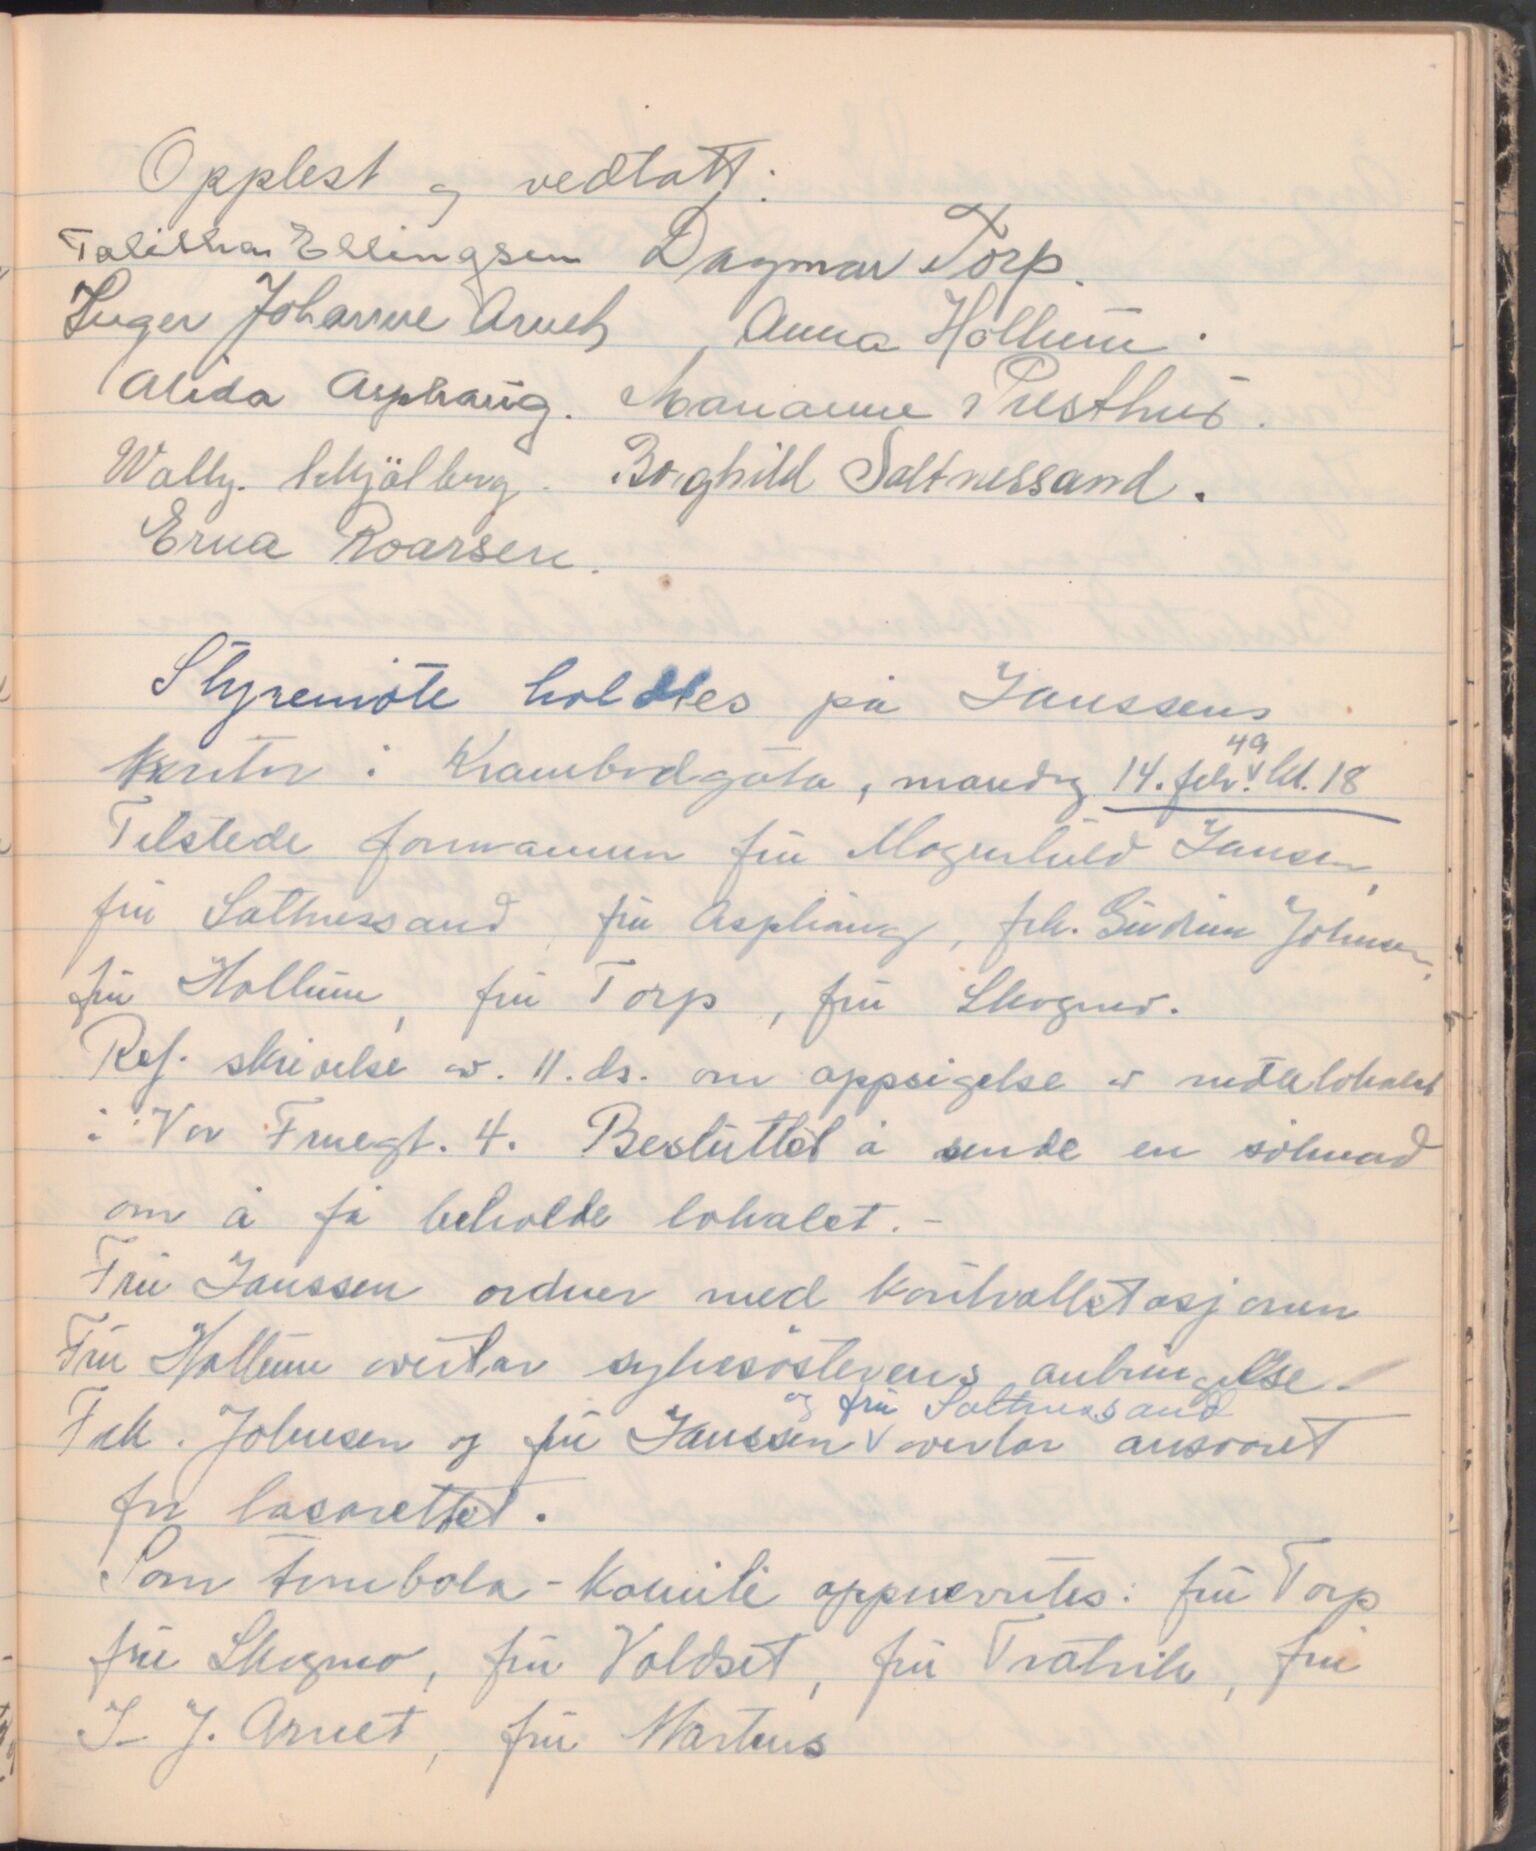 Opplest og vedtatt:
Talitha Ellingsen Dagmar Torp.
Inger Johanne Arnet, Anna Hollum.
Alida Asphaug. Marianne Presthus.
Wally Schjölberg. Borghild Saltnessand.
Erna Roarsen.
Styremöte holdtes på Janssens
kontor i Krambodgata, mandag 14. febr. 49 kl. 18
Tilstede formannen fru Magnhild Jansen,
fru Saltnessand, fru Asphaug, frk. Gudrun Johnsen,
fru Hollum, fru Torp, fru Skogmo.
Ref. skrivelse av. 11. ds. om oppsigelse av mötelokalet
i Vor Fruegt. 4. Besluttet å sende en söknad
om å få beholde lokalet. -
Fru Janssen ordner med kontrollstasjonen
Fru Hollum overtar sykesösterens anbringelse.
og fru Saltnessand
Frk. Johnsen og fru Janssen overtar ansvaret
for lasarettet.
Som tombola-komite oppnevntes: fru Torp
fru Skogmo, fru Voldset, fru Trætvik, fru
I. J. Arnet, fru Martens